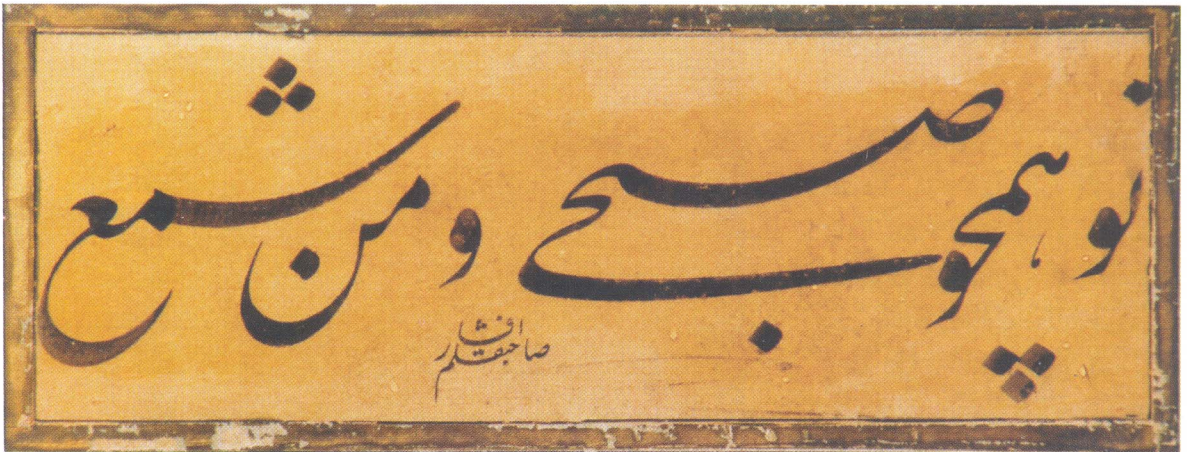 تو همچو صبحی و من شمع
صاحبقلم افشار